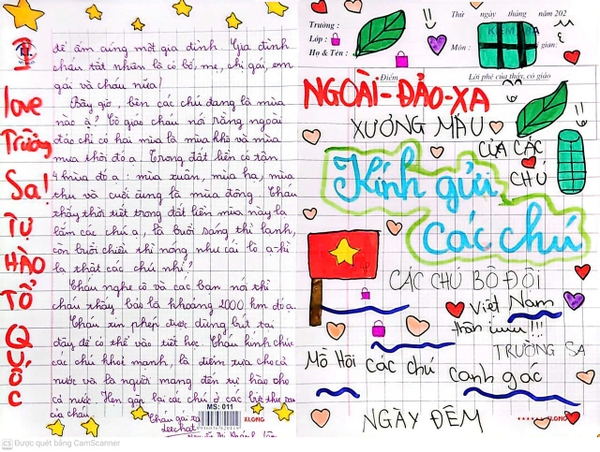 I
love
Trường
Sa!
TỰ
HÀO
TỔ
QUỐC
để ấm cúng một gia đình. Gia đình
cháu tất nhiên là có bố, mẹ, chị gái, em
gái và cháu nữa!
Bây giờ, bên các chú đang là mùa
nào ạ? Cô giáo cháu nói rằng ngoài
đảo chỉ có hai mùa là mùa khô và mùa
mưa thôi đó ạ. Trong đất liền có tận
4 mùa đó ạ: mùa xuân, mùa hạ, mùa
thu và cuối cùng là mùa đông. Cháu
thấy thời tiết trong đất liền mùa này lạ
lắm các chú ạ, là buổi sáng thì lạnh,
còn buổi chiều thì nóng như cái lò ạ-kì
lạ thật các chú nhỉ!
Cháu nghe cô và các bạn nói thì
cháu thấy bảo là khoảng 2000 km đó ạ.
Cháu xin phép được dừng bút tại
đây để có thể vào tiết học. Cháu kính chúc
các chú khoẻ mạnh, là điểm tựa cho cả
nước và là người mang đến sự tự hào cho
cả nước. Hẹn gặp lại các chú ở các bức thư sau
của cháu.
Cháu gái xa
MS: 011
KLONG
CS Được quét bằng CamScanner
Trường :
Lớp :
Họ & Tên :
Thứ ngày tháng năm 202
Môn :
gian:
Điểm
Lời phê của thầy, cô giáo
NGOÀI-ĐẢO-XA
XƯƠNG MÁU
CỦA CÁC
CHÚ
Kính gửi
các chú
CÁC CHÚ BỘ ĐỘI
Việt Nam
thân iuuu!!!
TRƯỜNG SA
Mồ Hôi các chú
canh gác
NGÀY ĐÊM
KLONG